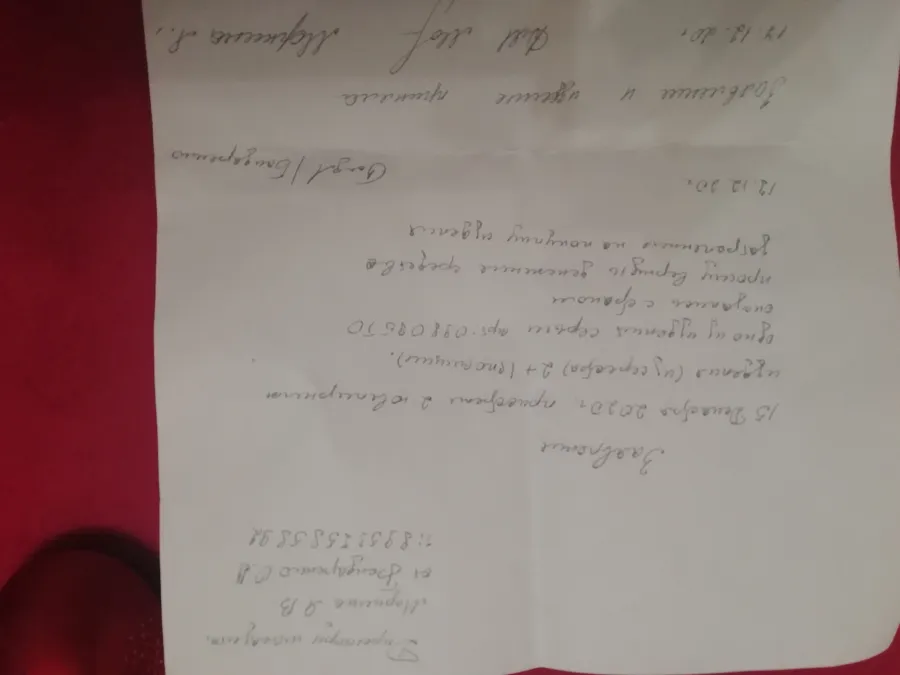 Директору магазина
Маркиной Я В
от Бондаренко С.А
т: 89337585892
Заявление
15 Декабря 2020г. приобрела 2 ювелирных
изделия (из серебра) 2+1 (по акции).
одно из изделий серьги арт. 09809650
оказались с браком
прошу вернуть денежные средства
затраченные на покупку изделия
17.12.20г. Бондаренко
Заявление и изделие приняла
17.12.20г.